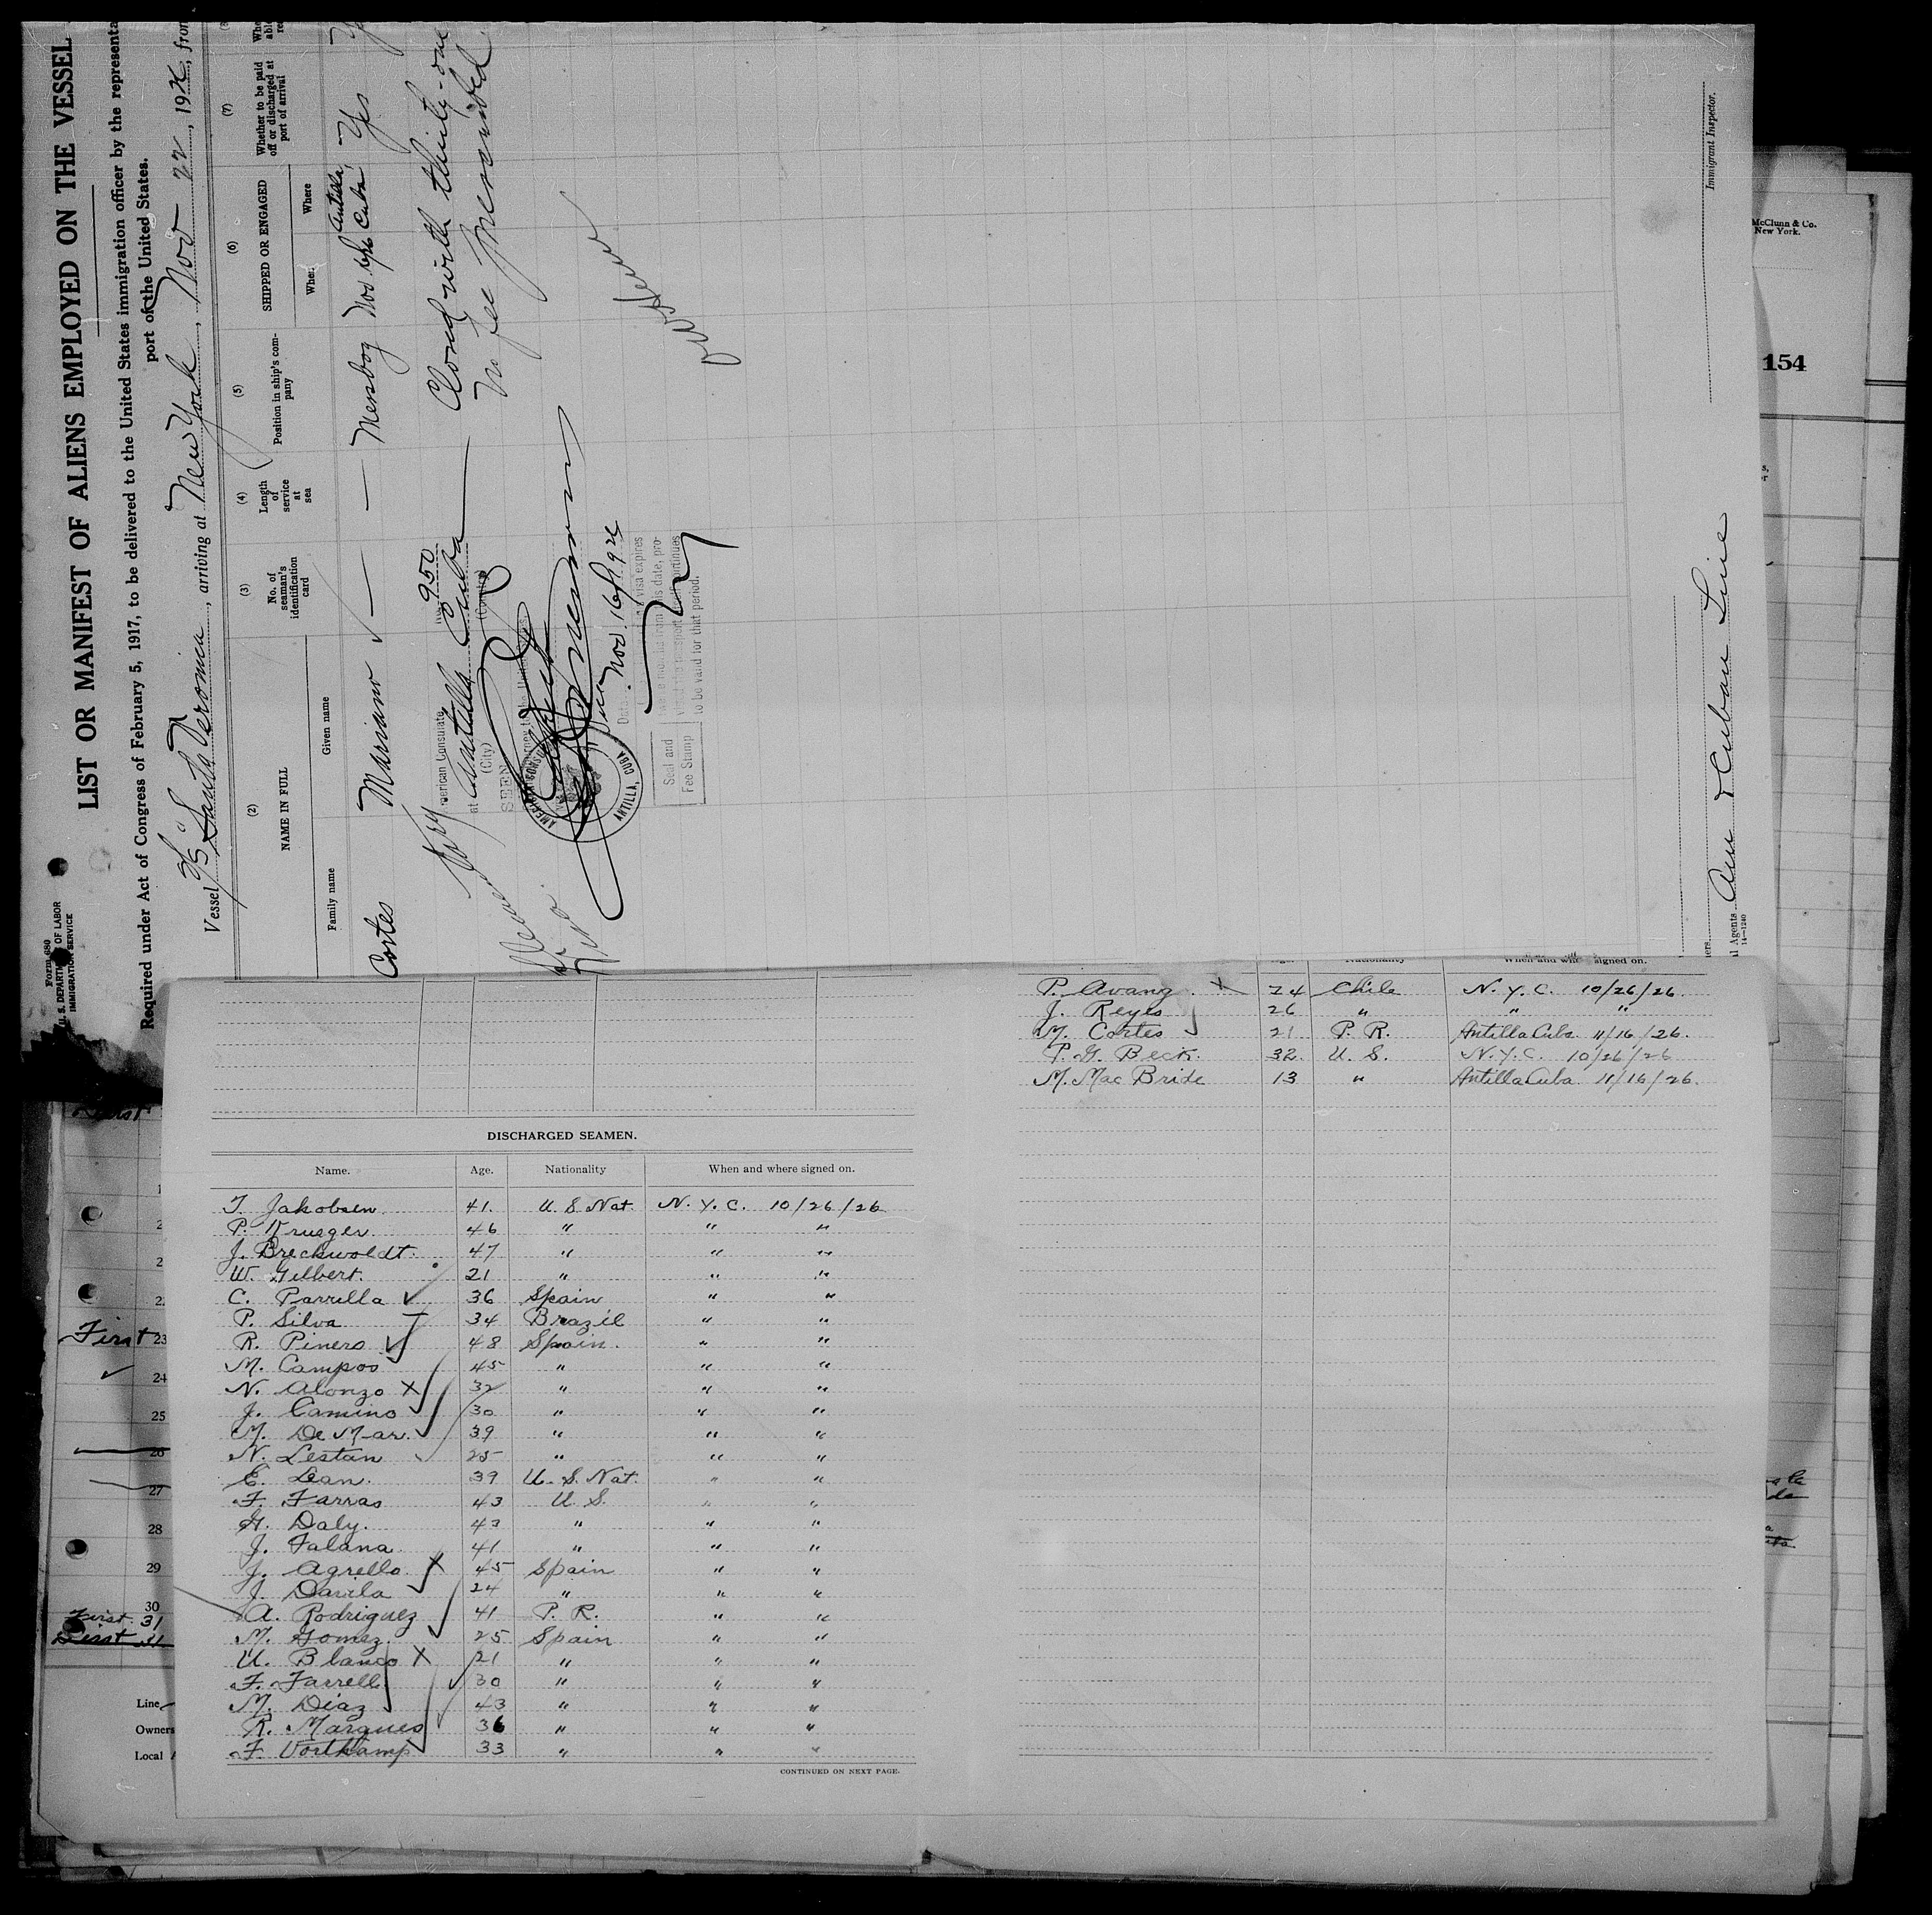 Form 680
U. S. DEPARTMENT OF LABOR
IMMIGRATION SERVICE
LIST OR MANIFEST OF ALIENS EMPLOYED ON THE VESSEL
Required under Act of Congress of February 5, 1917, to be delivered to the United States immigration officer by the representa
port of the United States.
Vessel S/S "Santa Veronica", arriving at New York, Nov 22, 1926, from
(2) (3) (4) (5) (6) (7)
NAME IN FULL
Family name Given name
No. of seaman's identification card
Length of service at sea
Position in ship's company
SHIPPED OR ENGAGED
When Where
Whether to be paid off or discharged at port of arrival
Cortes Mariano — — Messboy Nov 16/26 Antilla, Cuba Yes
Closed with thirty-one
No fee prescribed
American Consulate
950
at Antilla Cuba
(City) (Country)
SEEN
AMERICAN CONSULATE
ANTILLA, CUBA
Date Nov. 16/1926
visa expires
to be valid for that period.
Seal and
Fee Stamp
Immigrant Inspector.
Agents Am & Cuban Line
14—1240
McClunn & Co.
New York.
154
DISCHARGED SEAMEN.
Name. Age. Nationality When and where signed on.
T. Jakobsen 41. U. S. Nat. N. Y. C. 10/26/26
P. Krueger. 46 " " "
J. Breckwoldt. 47 " " "
W. Gilbert. 21 " " "
C. Parrilla 36 Spain " "
P. Silva 34 Brazil " "
R. Pinero 48 Spain. " "
M. Campos 45 " " "
N. Alonzo X 32 " " "
J. Camino 30 " " "
M. De Mar. 39 " " "
N. Lestan 25 " " "
E. Dean. 39 U. S. Nat. " "
F. Farras 43 U. S. " "
H. Daly. 43 " " "
J. Falana. 41 " " "
J. Agrello. X 45 Spain " "
J. Davila 24 " " "
A. Rodriguez 41 P. R. " "
M. Gomez. 25 Spain " "
U. Blanco X 21 " " "
F. Farrell 30 " " "
M. Diaz 43 " " "
R. Marques 36 " " "
F. Vortkamp 33 " " "
CONTINUED ON NEXT PAGE.
Nationality When and where signed on.
P. Avanz. X 24 Chile N. Y. C. 10/26/26.
J. Reyes 26 " " "
M. Cortes 21 P. R. Antilla Cuba. 11/16/26.
P. G. Beck. 32. U. S. N. Y. C. 10/26/26
M. Mac Bride 13 " Antilla Cuba. 11/16/26.
First 23
24
25
26
27
28
29
30
First 31
First 31
Line
Owners
Local